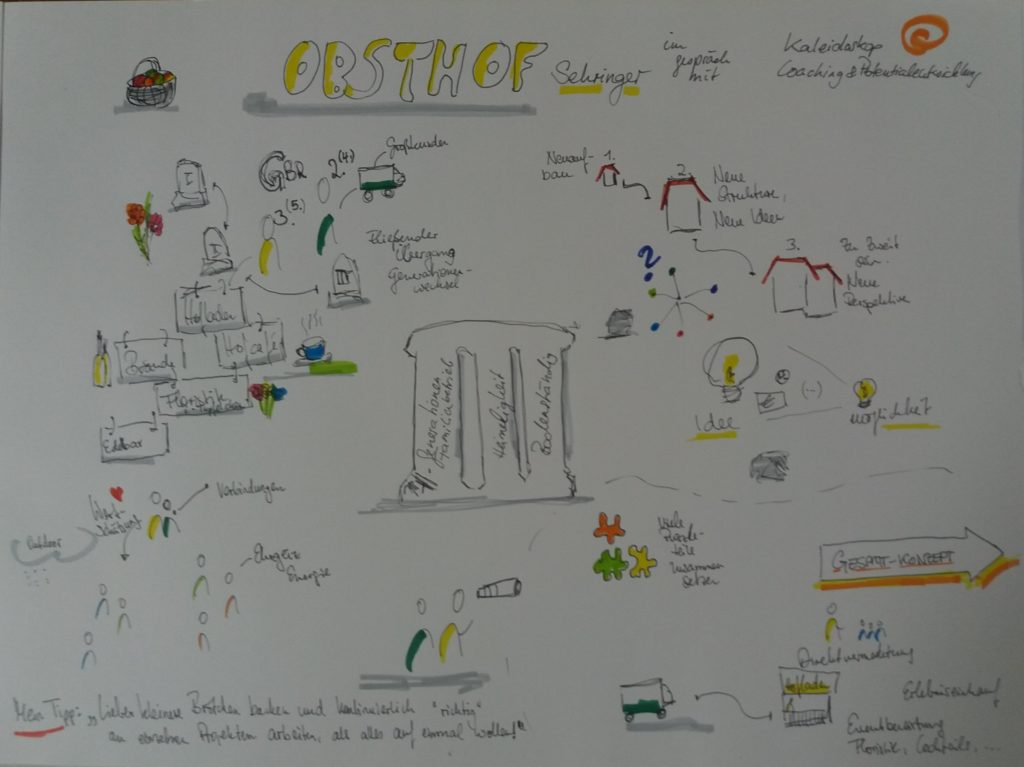 OBSTHOF
Sehringer
im
gespräch
mit
Kaleidoskop
Coaching & Potentialentwicklung
I
GBR
2.(4.)
Großkunden
3.(5.)
I
III
Fließender
Übergang
Generationen-
wechsel
Hofladen
Hofcafé
Floristik
Edelbar
Neuauf-
bau
1.
2.
Neue
Struktur,
Neue Idee
3.
Zu Zweit
Neue
Perspektive
?
Generationen
Familienbetrieb
Heimeligkeit
Bodenständig
Idee
(--)
Möglichkeit
Wert-
schätzung
Verbindungen
Outdoor
Energie
Viele
Puzzle-
teile
zusammen
setzen
GESAMT-KONZEPT
Direktvermarktung
Hofladen
Erlebniseinkauf
Floristik, Cocktails, ...
Mein Tipp: „Lieber kleinere Brötchen backen und kontinuierlich "richtig"
an einzelnen Projekten arbeiten, als alles auf einmal wollen!"